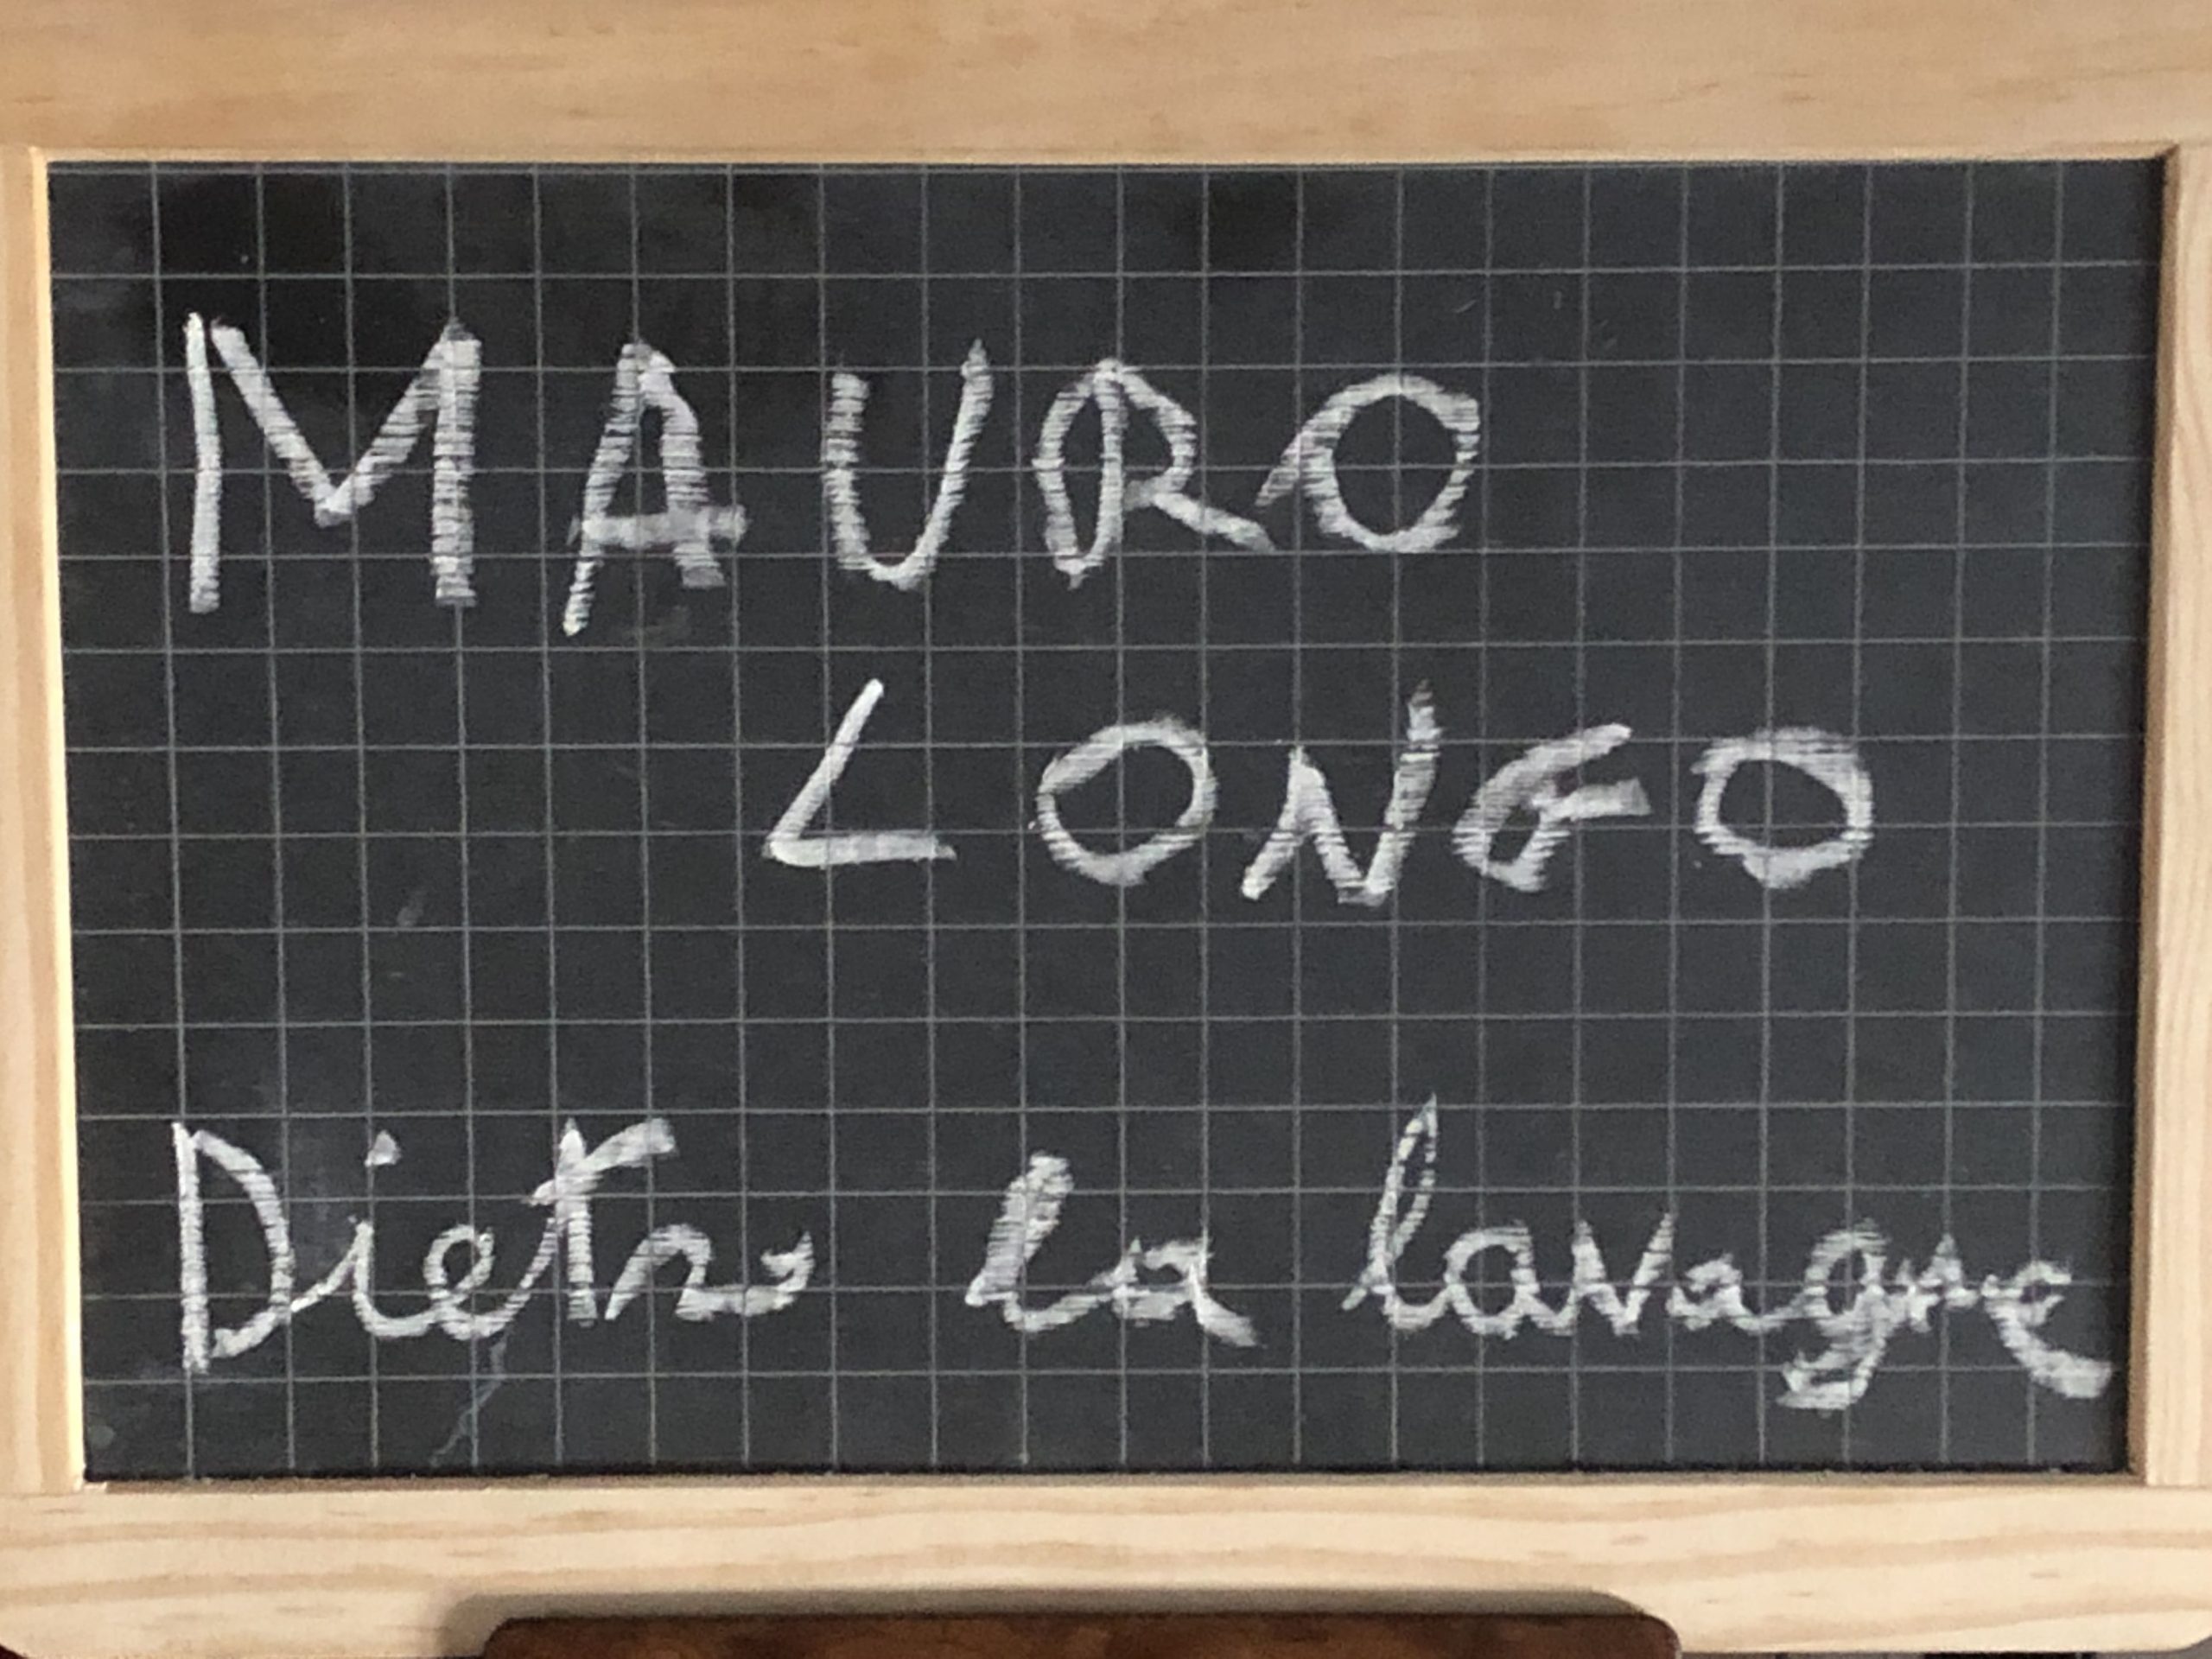 MAURO
LONGO
Dietro la lavagna